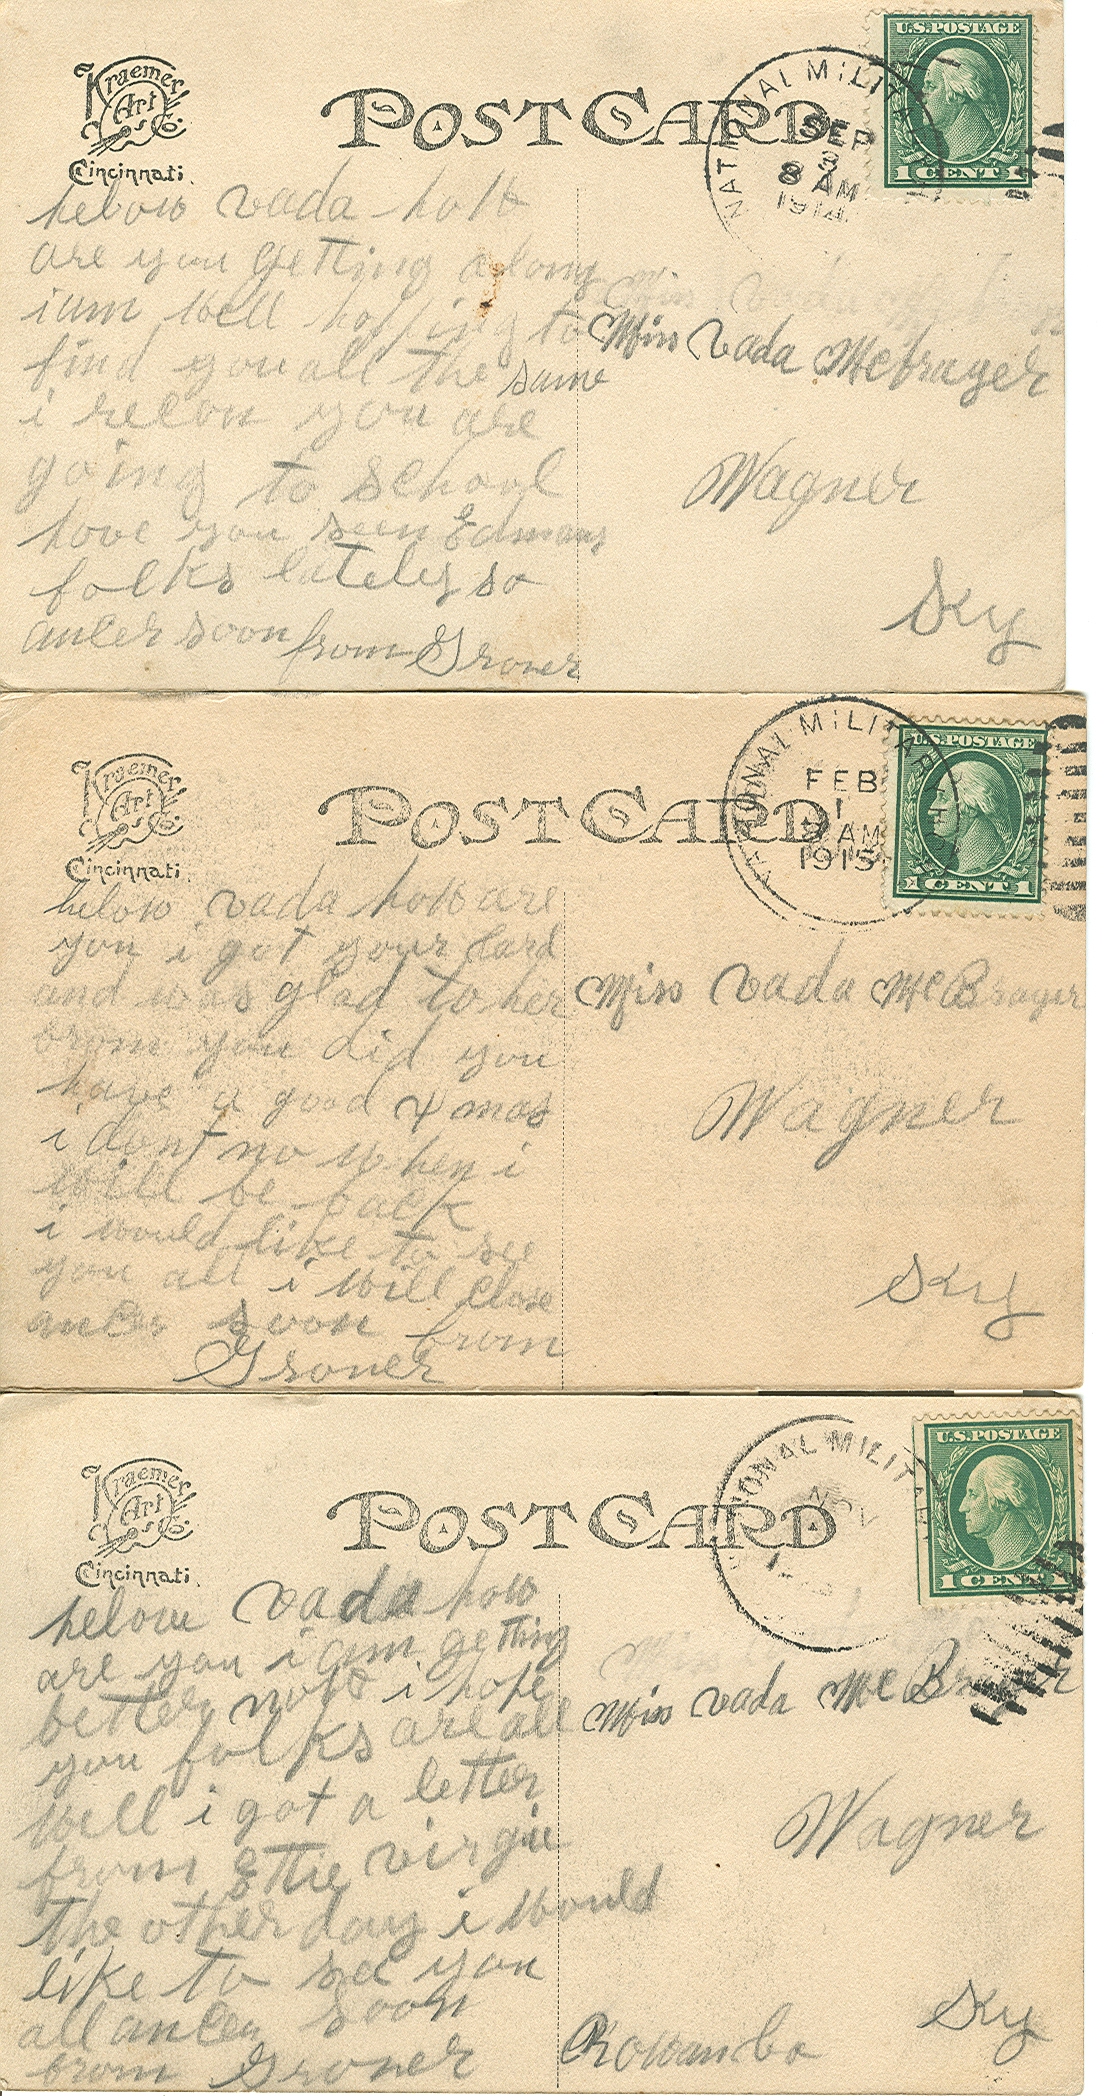 Kraemer
Art
Co.
Cincinnati.
POST CARD
NATIONAL MILITARY
SEP
3
8 AM
1914
U.S. POSTAGE
1 CENT 1
helow vada how
are you getting along
i am well hopping to
find you all the same
i recon you are
going to school
have you seen Edmans
folks lateley so
ancer soon from Grover
Miss Vada Mcbrayer
Wagner
Ky
Kraemer
Art
Co.
Cincinnati.
POST CARD
NATIONAL MILITARY HOME
FEB
1
AM
1915
U.S. POSTAGE
1 CENT 1
helow vada how are
you i got your card
and was glad to her
from you did you
have a good Xmas
i dont no when i
will be back
i would like to see
you all i will close
ancer soon from
Grover
Miss Vada McBrayer
Wagner
Ky
Kraemer
Art
Co.
Cincinnati.
POST CARD
NATIONAL MILITARY
NOV
U.S. POSTAGE
1 CENT 1
helow vada how
are you i am getting
better now i hope
you folks are all
well i got a letter
from Ettie virgie
the other day i would
like to see you
all ancer soon
from Grover
Miss Vada McBrayer
Wagner
Ky
Rowan Co